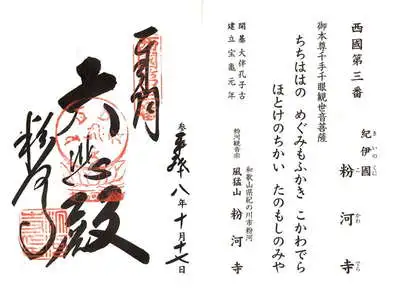 西國第三番
きいのくに こ かわ でら
紀伊國 粉河寺
御本尊千手千眼観世音菩薩
ちちははの めぐみもふかき こかわでら
ほとけのちかい たのもしのみや
開基大伴孔子古
建立宝亀元年
和歌山県紀の川市粉河
粉河観音宗 風猛山 粉河寺
八年十月十七日
大悲殿
粉河寺